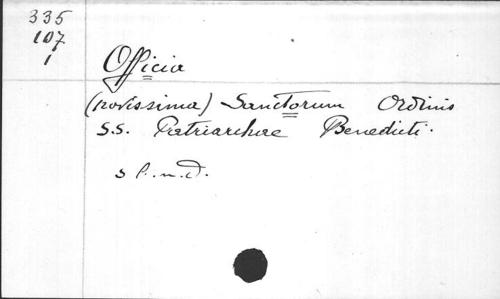 335
107
1
Officia
(novissima) Sanctorum Ordinis
S.S. Patriarchae Benedicti.
s l. n. d.